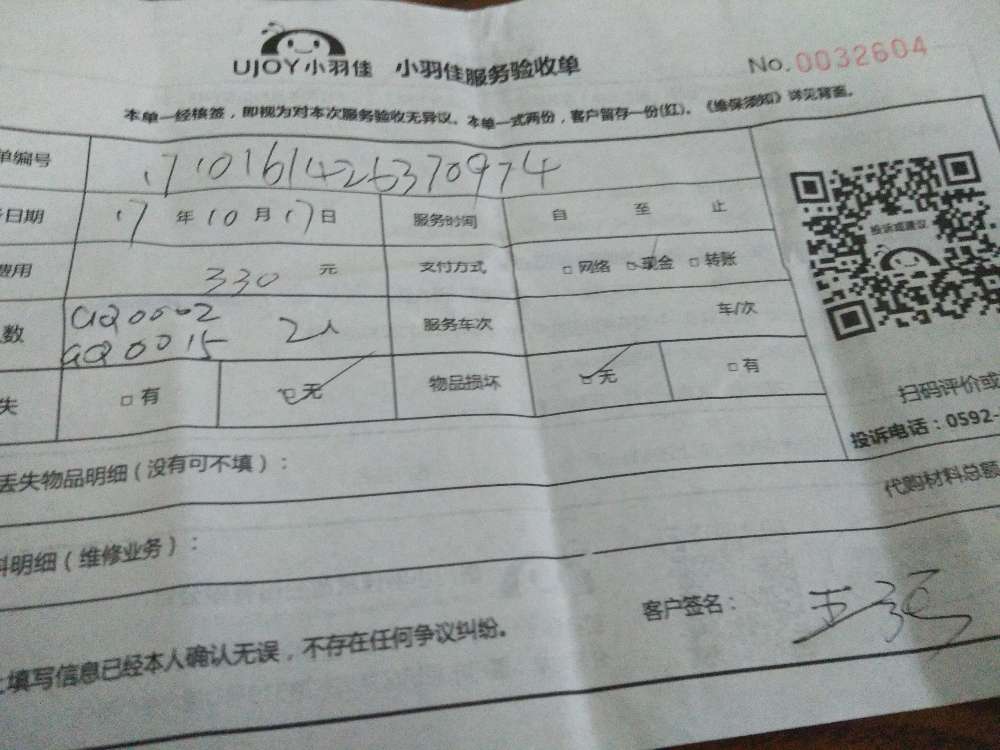 UJOY小羽佳 小羽佳服务验收单 No.0032604
本单一经核签，即视为对本次服务验收无异议。本单一式两份，客户留存一份(红)。《维保须知》详见背面。
单编号 1710161426370974
日期 17 年 10 月 17 日 服务时间 自 至 止
费用 330 元 支付方式 □ 网络 □ 现金 □ 转账
数 aQ0002 2人 服务车次 车/次
aQ0015
失 □ 有 □ 无 物品损坏 □ 无 □ 有
投诉或建议
扫码评价或
投诉电话：0592-
丢失物品明细（没有可不填）：
代购材料总额
料明细（维修业务）：
客户签名：
上填写信息已经本人确认无误，不存在任何争议纠纷。